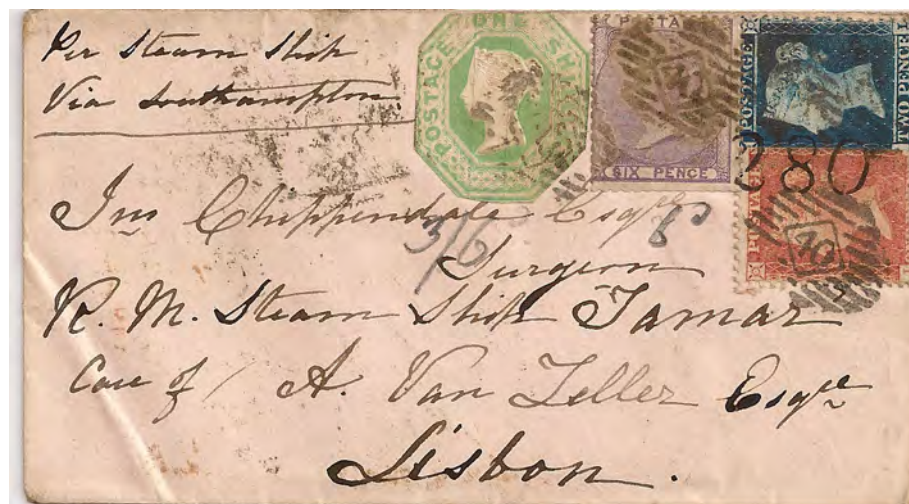 Per Steam Ship
Via Southampton.
POSTAGE ONE SHILLING
POSTAGE
SIX PENCE
POSTAGE
TWO PENCE
280
POSTAGE
Jno Chippendale Esqre
Surgeon
R. M. Steam Ship Tamar
Care of / A. Van Zeller Esqre
Lisbon.